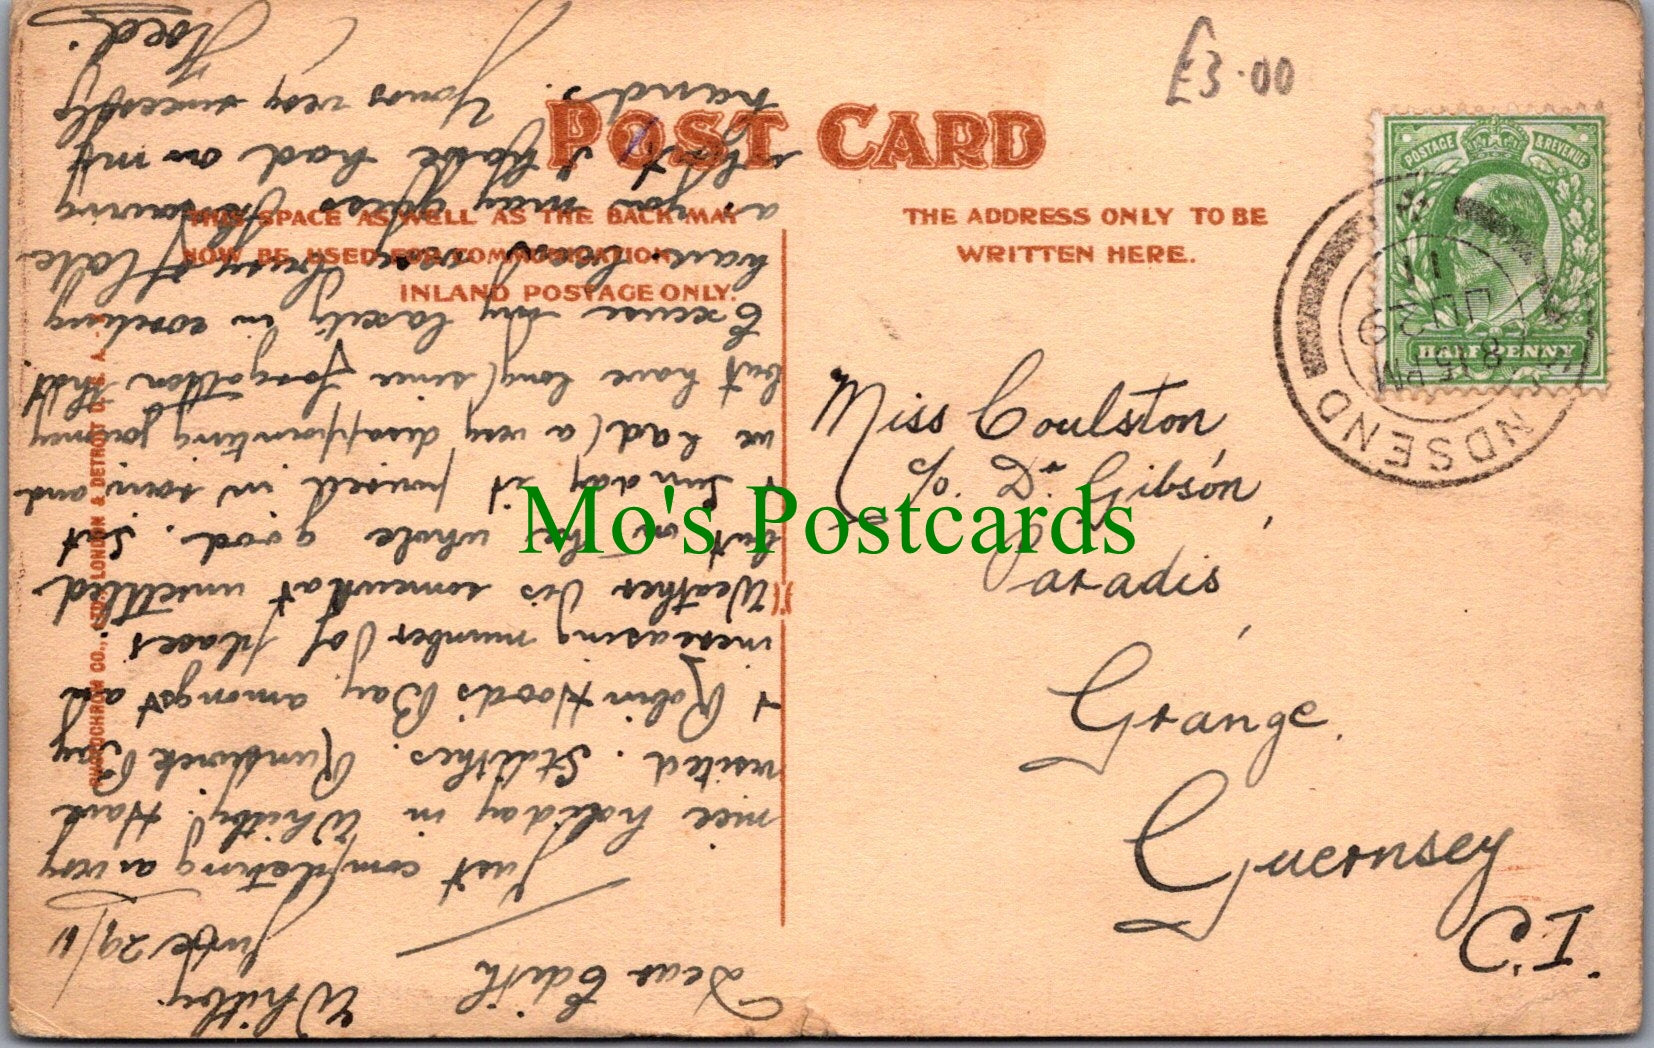 £3.00
POST CARD
THIS SPACE AS WELL AS THE BACK MAY
NOW BE USED FOR COMMUNICATION
INLAND POSTAGE ONLY.
THE ADDRESS ONLY TO BE
WRITTEN HERE.
POSTAGE & REVENUE
HALFPENNY
NDSEND
8 15 PM
JU 29
11
Miss Coulston
c/o. Dr Gibson,
Paradis,
Grange.
Guernsey
C.I.
Mo's Postcards
PHOTOCHROM CO., LTD. LONDON & DETROIT U.S.A.
Whitby.
June 29/11
Dear Edith
Just completing a very
nice holiday in Whitby. Have
visited. Staithes. Runswick Bay
+ Robin Hood's Bay amongst an
increasing number of places.
Weather is somewhat unsettled
but on the whole good. Sat
+ Sunday it poured in rain and
we had (a very disappointing journey
but have long since forgotten that.
Excuse my laxity in
have been very busy of late
as you may guess
what I have had on my
hands. Yours very sincerely
Fred.